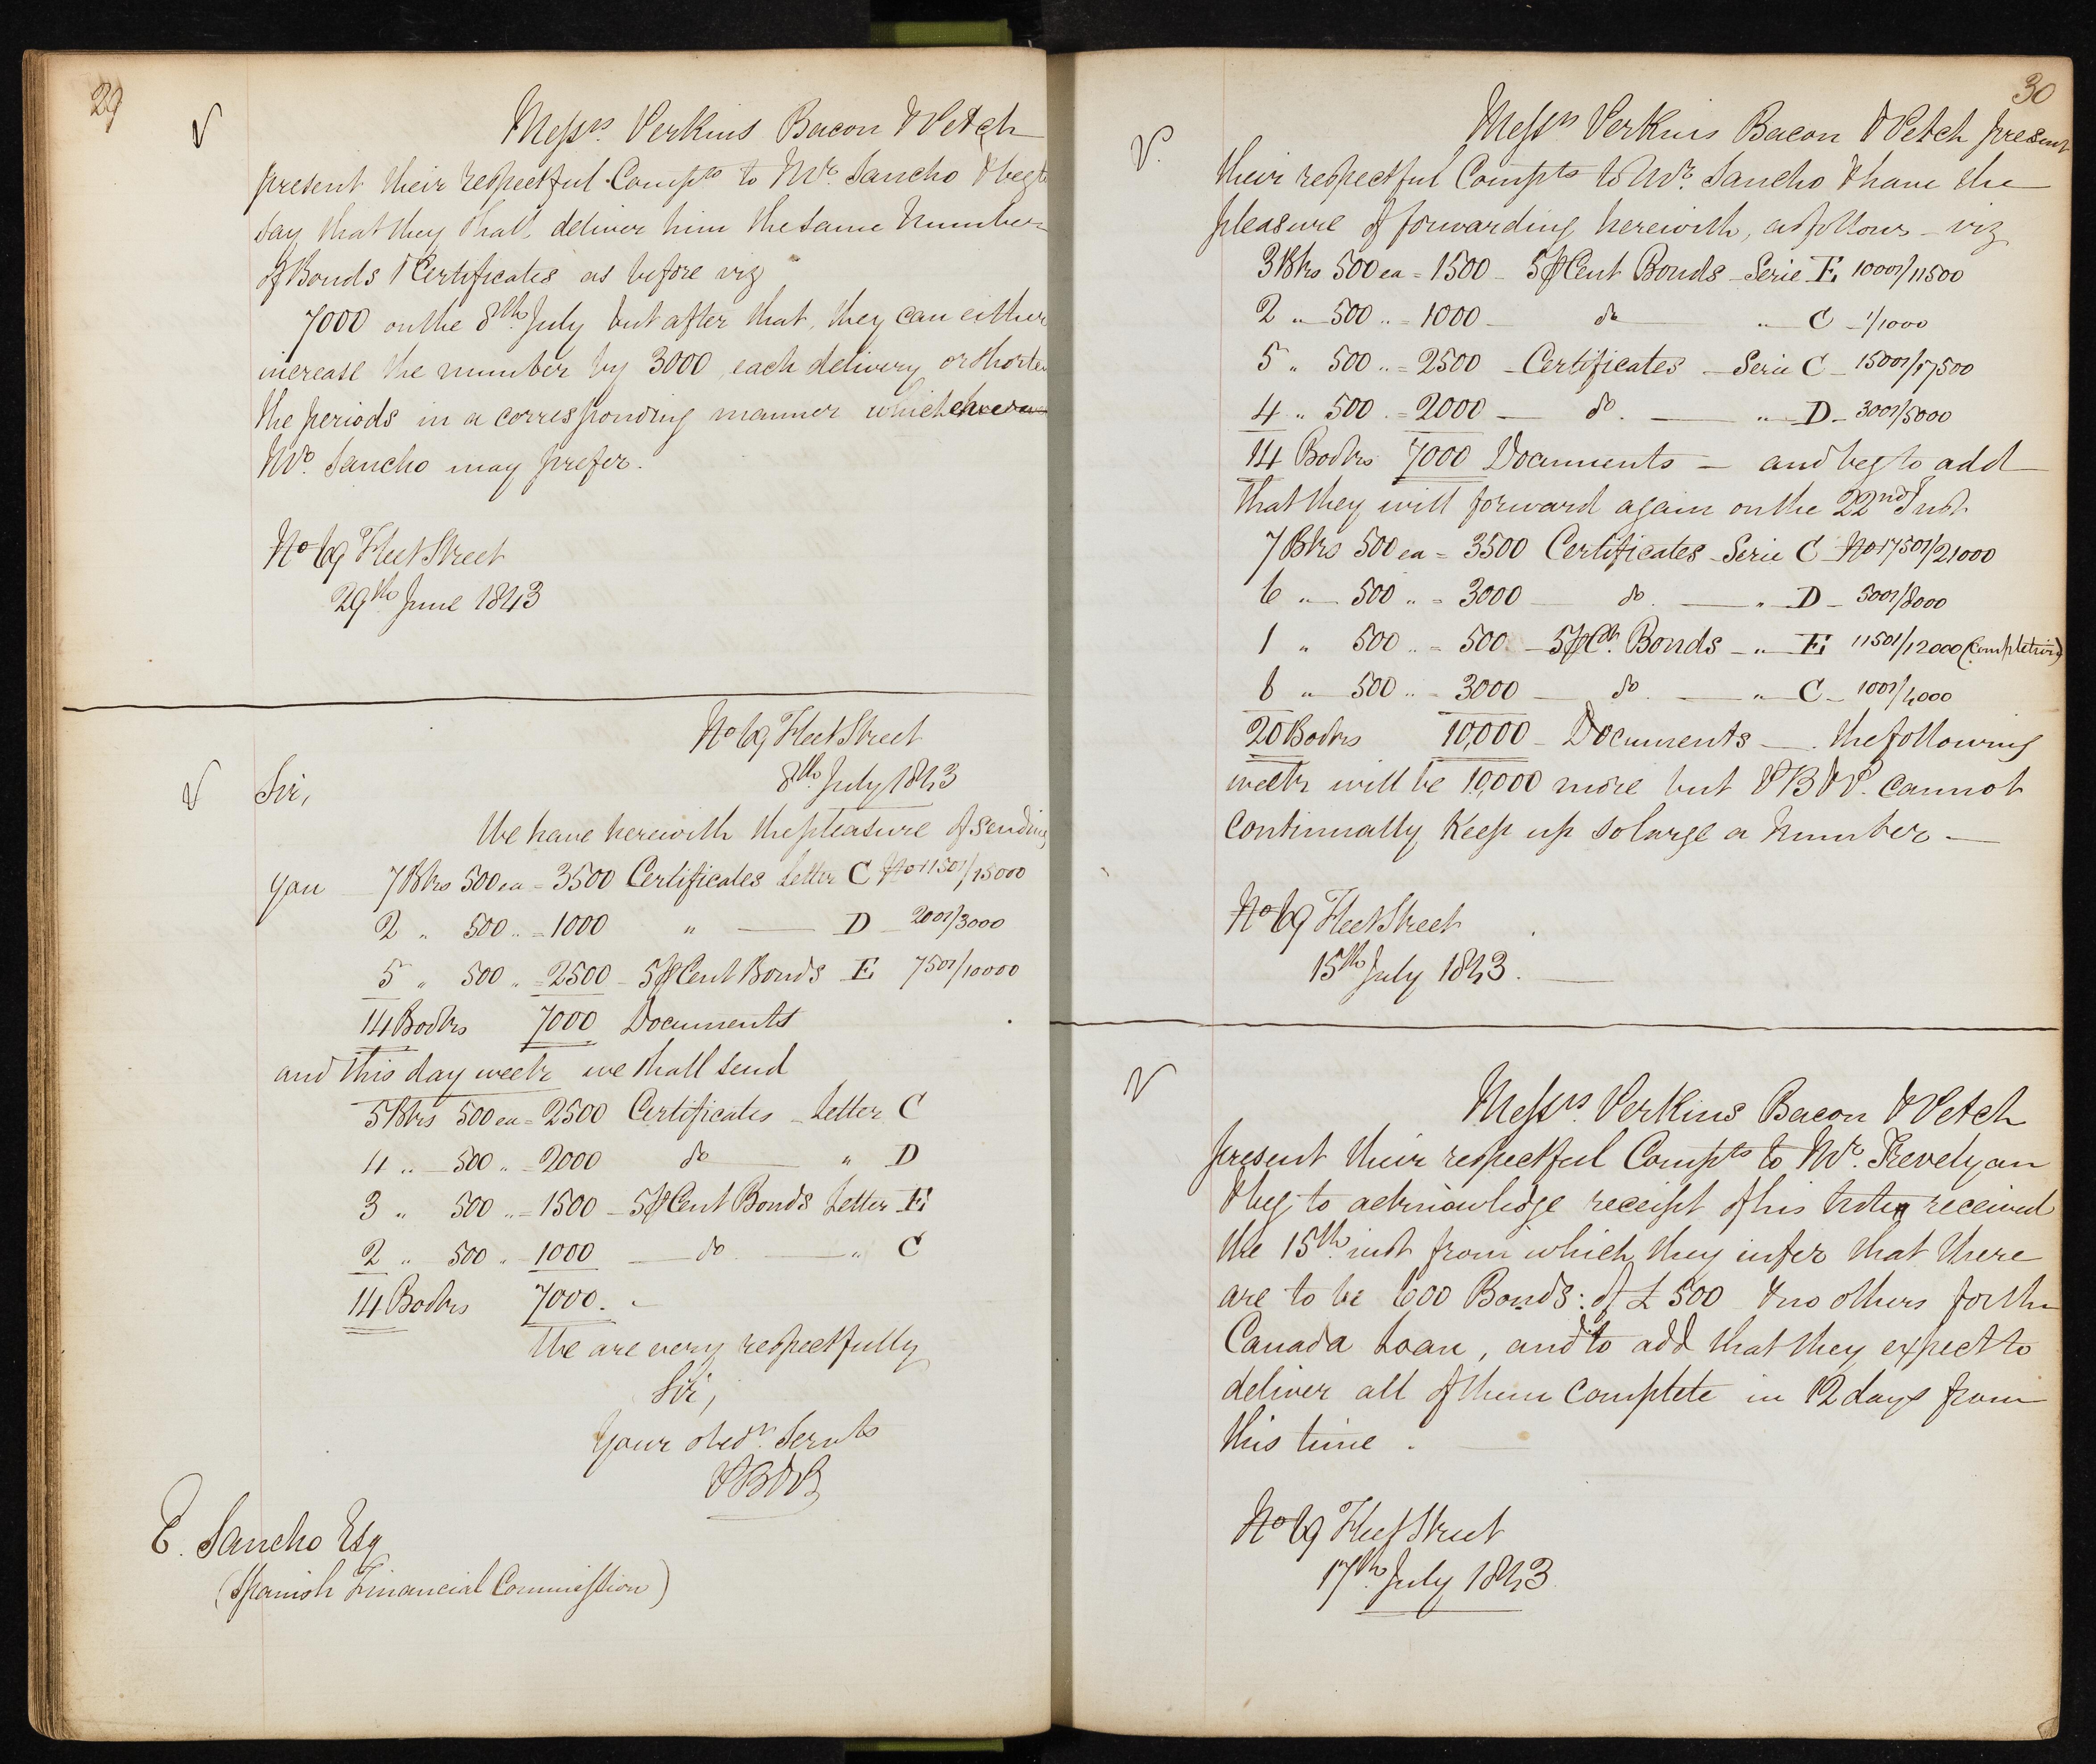 29
Messrs. Perkins Bacon & Petch
present their respectful Compts to Mr. Sancho & beg to
say that they shall deliver him the same Number
of Bonds & Certificates as before viz
7000 on the 8th July but after that, they can either
increase the number by 3000 each delivery or shorten
the periods in a corresponding manner whichever
Mr. Sancho may prefer.
No 69 Fleet Street
29th June 1843
No 69 Fleet Street
8th July 1843
Sir,
We have herewith the pleasure of sending
you 7 Bks 500 ea = 3500 Certificates Letter C No 11501/15000
2 " 500 " = 1000 " — D — 2001/3000
5 " 500 " = 2500 — 5 ⅌ Cent Bonds E 7501/10000
14 Books 7000 Documents
and this day week we shall send
5 Bks 500 ea = 2500 Certificates — Letter C
4 " — 500 " = 2000 do — " D
3 " 500 " = 1500 — 5 ⅌ Cent Bonds Letter E
2 " 500 " — 1000 — do — " C
14 Books 7000. —
We are very respectfully
Sir,
Your obedt. Servts
PB&P
E. Sancho Esq
(Spanish Financial Commission)
30
Messrs Perkins Bacon & Petch present
their respectful Compts to Mr. Sancho & have the
pleasure of forwarding herewith, as follows — viz
3 Bks 500 ea = 1500 — 5 ⅌ Cent Bonds — Serie E 10001/11500
2 " — 500 " = 1000 — do — " — C — 1/1000
5 " 500 " = 2500 — Certificates — Serie C — 15001/17500
4 " 500 " = 2000 — do. — " — D — 3001/5000
14 Books 7000 Documents — and beg to add
that they will forward again on the 22nd Inst.
7 Bks 500 ea = 3500 Certificates — Serie C — No 17501/21000
6 " — 500 " = 3000 — do. — " — D — 5001/8000
1 " 500 " = 500 — 5 ⅌ Ct. Bonds — " — E 11501/12000 (Completing)
6 " — 500 " — 3000 — do. — " — C — 1001/4000
20 Books 10,000 — Documents —. the following
week will be 10,000 more but PB&P. cannot
continually keep up so large a Number —
No 69 Fleet Street
15th July 1843. —
Messrs. Perkins Bacon & Petch
present their respectful Compts to Mr. Trevelyan
& beg to acknowledge receipt of his note received
the 15th inst from which they infer that there
are to be 600 Bonds: of £500 & no others for the
Canada Loan, and to add that they expect to
deliver all of them complete in 12 days from
this time. —
No 69 Fleet Street
17th July 1843.